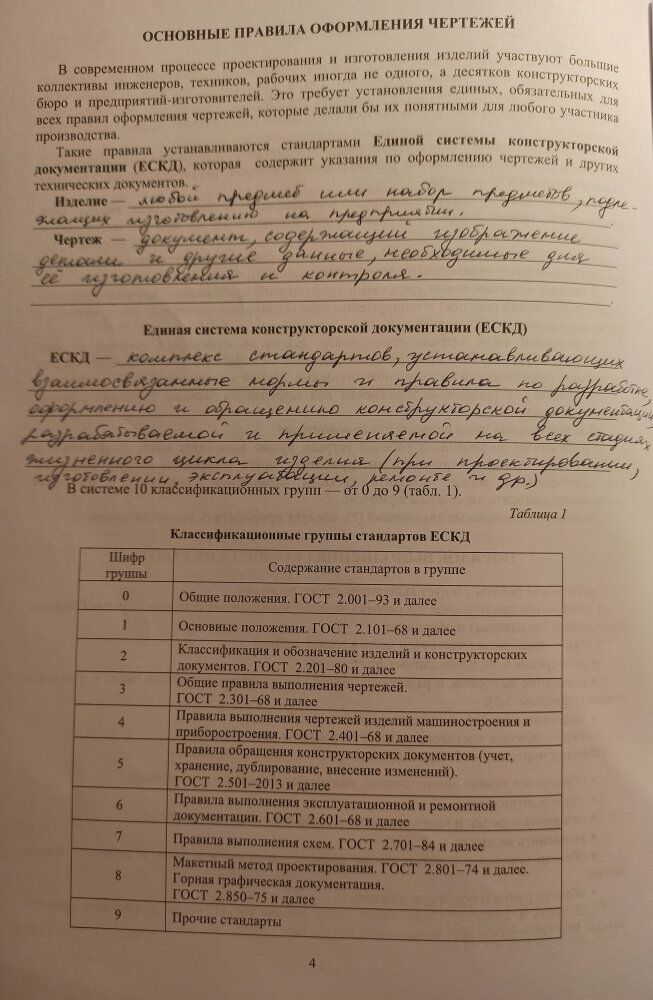 ОСНОВНЫЕ ПРАВИЛА ОФОРМЛЕНИЯ ЧЕРТЕЖЕЙ
В современном процессе проектирования и изготовления изделий участвуют большие
коллективы инженеров, техников, рабочих иногда не одного, а десятков конструкторских
бюро и предприятий-изготовителей. Это требует установления единых, обязательных для
всех правил оформления чертежей, которые делали бы их понятными для любого участника
производства.
Такие правила устанавливаются стандартами Единой системы конструкторской
документации (ЕСКД), которая содержит указания по оформлению чертежей и других
технических документов.
Изделие — любой предмет или набор предметов, подле-
жащих изготовлению на предприятии.
Чертеж — документ, содержащий изображение
детали и другие данные, необходимые для
её изготовления и контроля.
Единая система конструкторской документации (ЕСКД)
ЕСКД — комплекс стандартов, устанавливающих
взаимосвязанные нормы и правила по разработке,
оформлению и обращению конструкторской документации,
разрабатываемой и применяемой на всех стадиях
жизненного цикла изделия (при проектировании,
изготовлении, эксплуатации, ремонте и др.)
В системе 10 классификационных групп — от 0 до 9 (табл. 1).
Таблица 1
Классификационные группы стандартов ЕСКД
Шифр группы Содержание стандартов в группе
0 Общие положения. ГОСТ 2.001–93 и далее
1 Основные положения. ГОСТ 2.101–68 и далее
2 Классификация и обозначение изделий и конструкторских
документов. ГОСТ 2.201–80 и далее
3 Общие правила выполнения чертежей.
ГОСТ 2.301–68 и далее
4 Правила выполнения чертежей изделий машиностроения и
приборостроения. ГОСТ 2.401–68 и далее
5 Правила обращения конструкторских документов (учет,
хранение, дублирование, внесение изменений).
ГОСТ 2.501–2013 и далее
6 Правила выполнения эксплуатационной и ремонтной
документации. ГОСТ 2.601–68 и далее
7 Правила выполнения схем. ГОСТ 2.701–84 и далее
8 Макетный метод проектирования. ГОСТ 2.801–74 и далее.
Горная графическая документация.
ГОСТ 2.850–75 и далее
9 Прочие стандарты
4